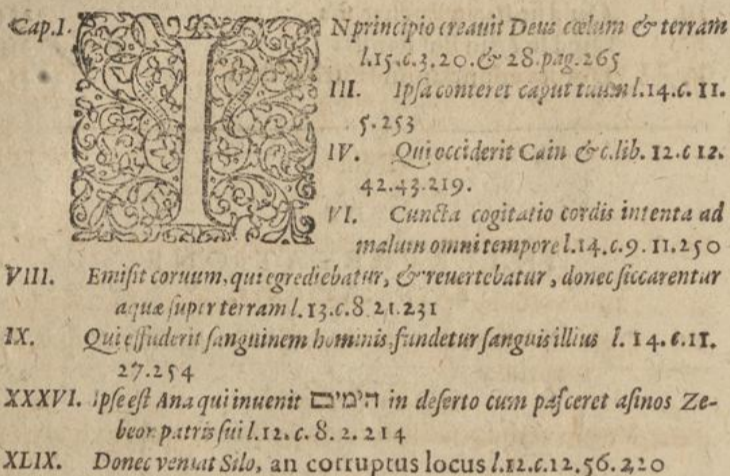 Cap.1. IN principio creauit Deus cœlum & terram
l.15.c.3.20.& 28.pag.265
III. Ipſa conteret caput tuum l.14.c. 11.
5.253
IV. Qui occiderit Cain &c.lib. 12.c 12.
42.43.219.
VI. Cuncta cogitatio cordis intenta ad
malum omni tempore l.14.c.9. 11.250
VIII. Emiſit coruum, qui egrediebatur, & reuertebatur, donec ſiccarentur
aquæ ſuper terram l. 13.c.8.21.231
IX. Qui effuderit ſanguinem hominis, fundetur ſanguis illius l. 14.c.11.
27.254
XXXVI. Ipſe eſt Ana qui inuenit הימים in deſerto cum paſceret aſinos Ze-
beon patris ſui l.12.c.8.2.214
XLIX. Donec veniat Silo, an corruptus locus l.12.c.12.56.220